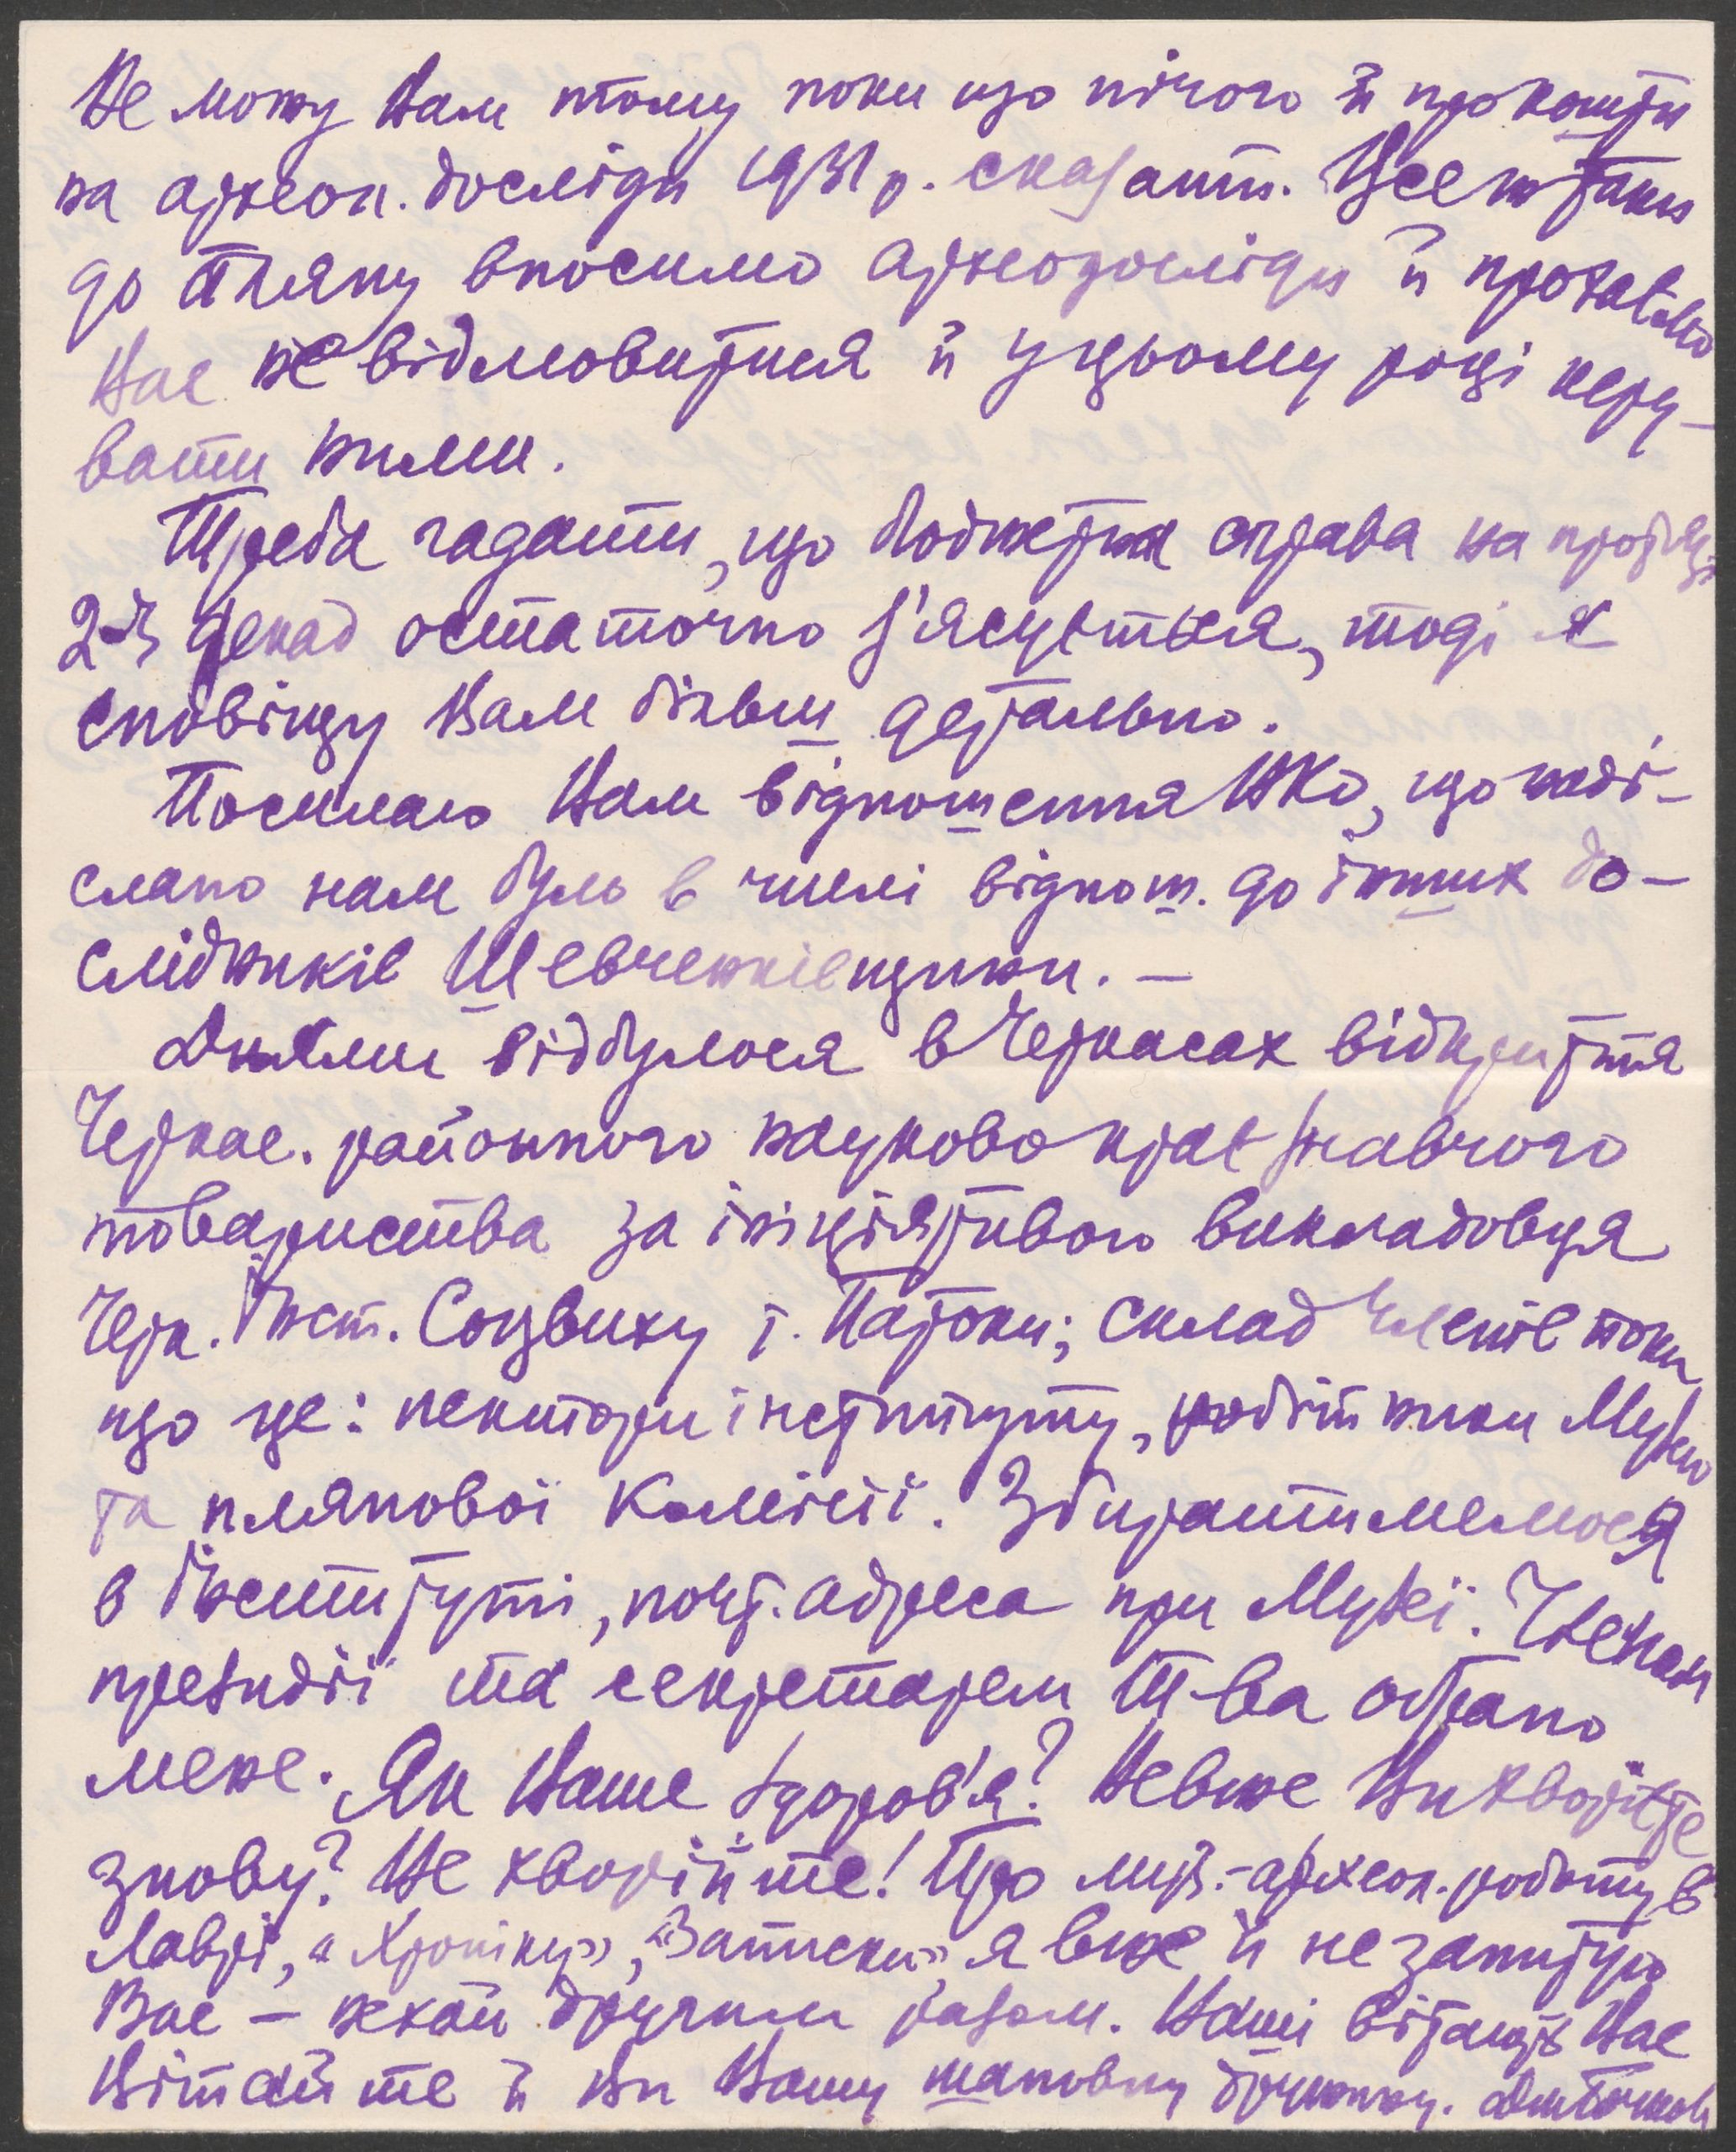 Не можу Вам тому поки що нічого й про кошти
на археол. досліди 1931 р. сказати. Все ж таки
до пляну вносимо археодосліди й прохаємо
Вас не відмовитися й у цьому році керу-
вати ними.
Треба гадати, що бюджетна справа на протязі
2-3 декад остаточно з'ясується, тоді я
сповіщу Вам більш детально.
Посилаю Вам відношення НКО, що наді-
слано нам було в числі віднош. до інших до-
слідників Шевченківщини. –
Днями відбулося в Черкасах відкриття
Черкас. районного науково краєзнавчого
товариства за ініціятивою викладовця
Черк. Інст. Соцвиху т. Патоки; склад членів поки
що це: лектори інституту, робітники Музею
та плянової комісії. Збиратимемося
в Інституті, пошт. адреса при Музеї. Членом
президії та секретарем Т-ва обрано
мене. Як Ваше здоров'я? Невже Ви хворієте
знову? Не хворійте! Про муз.-археол. роботу в
Лаврі, "Хроніку", "Записки" я вже й не запитую
Вас – нехай другим разом. Наші вітають Вас
Вітайте й Ви Вашу шановну дружину.